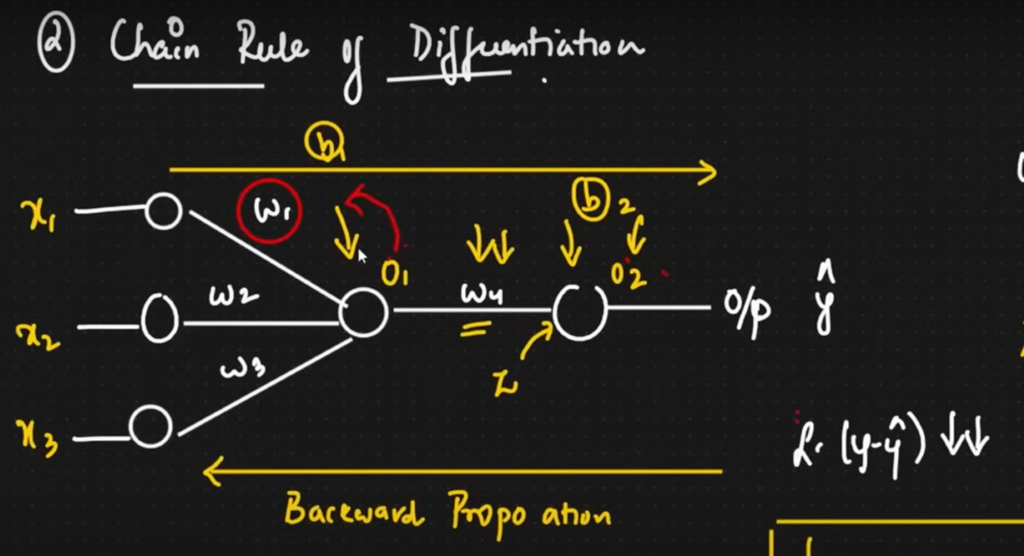 ② Chain Rule of Diffuentiation
b1
x1
w1
b2
O1
O2
w2
w4
O/p ŷ
x2
w3
z
x3
L. (y-ŷ) ↓↓
Backward Propo ation